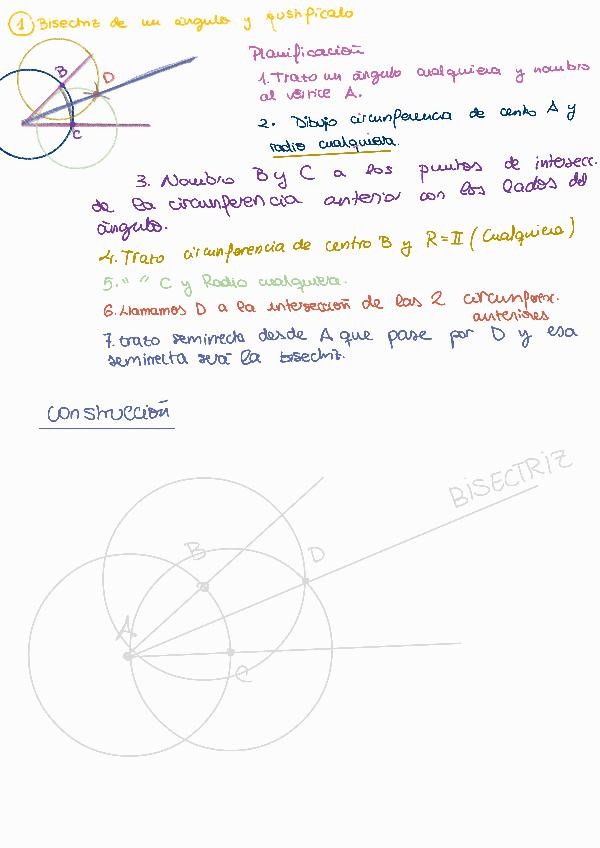 1 Bisectriz de un angulo y justificalo
Planificación
1. Trato un ángulo cualquiera y nombro
al vértice A.
2. Dibujo circunferencia de cento A y
radio cualquiera.
3. Nombro B y C a los puntos de intersecc.
de la circunferencia anterior con los lados del
ángulo.
4. Trato circunferencia de centro B y R = II (Cualquiera)
5. " " C y Radio cualquiera.
6. Llamamos D a la intersección de las 2 circunferen.
anteriores
7. trato semirrecta desde A que pase por D y esa
semirrecta será la bisectriz.
B
D
C
Construcción
BISECTRIZ
B
D
A
C